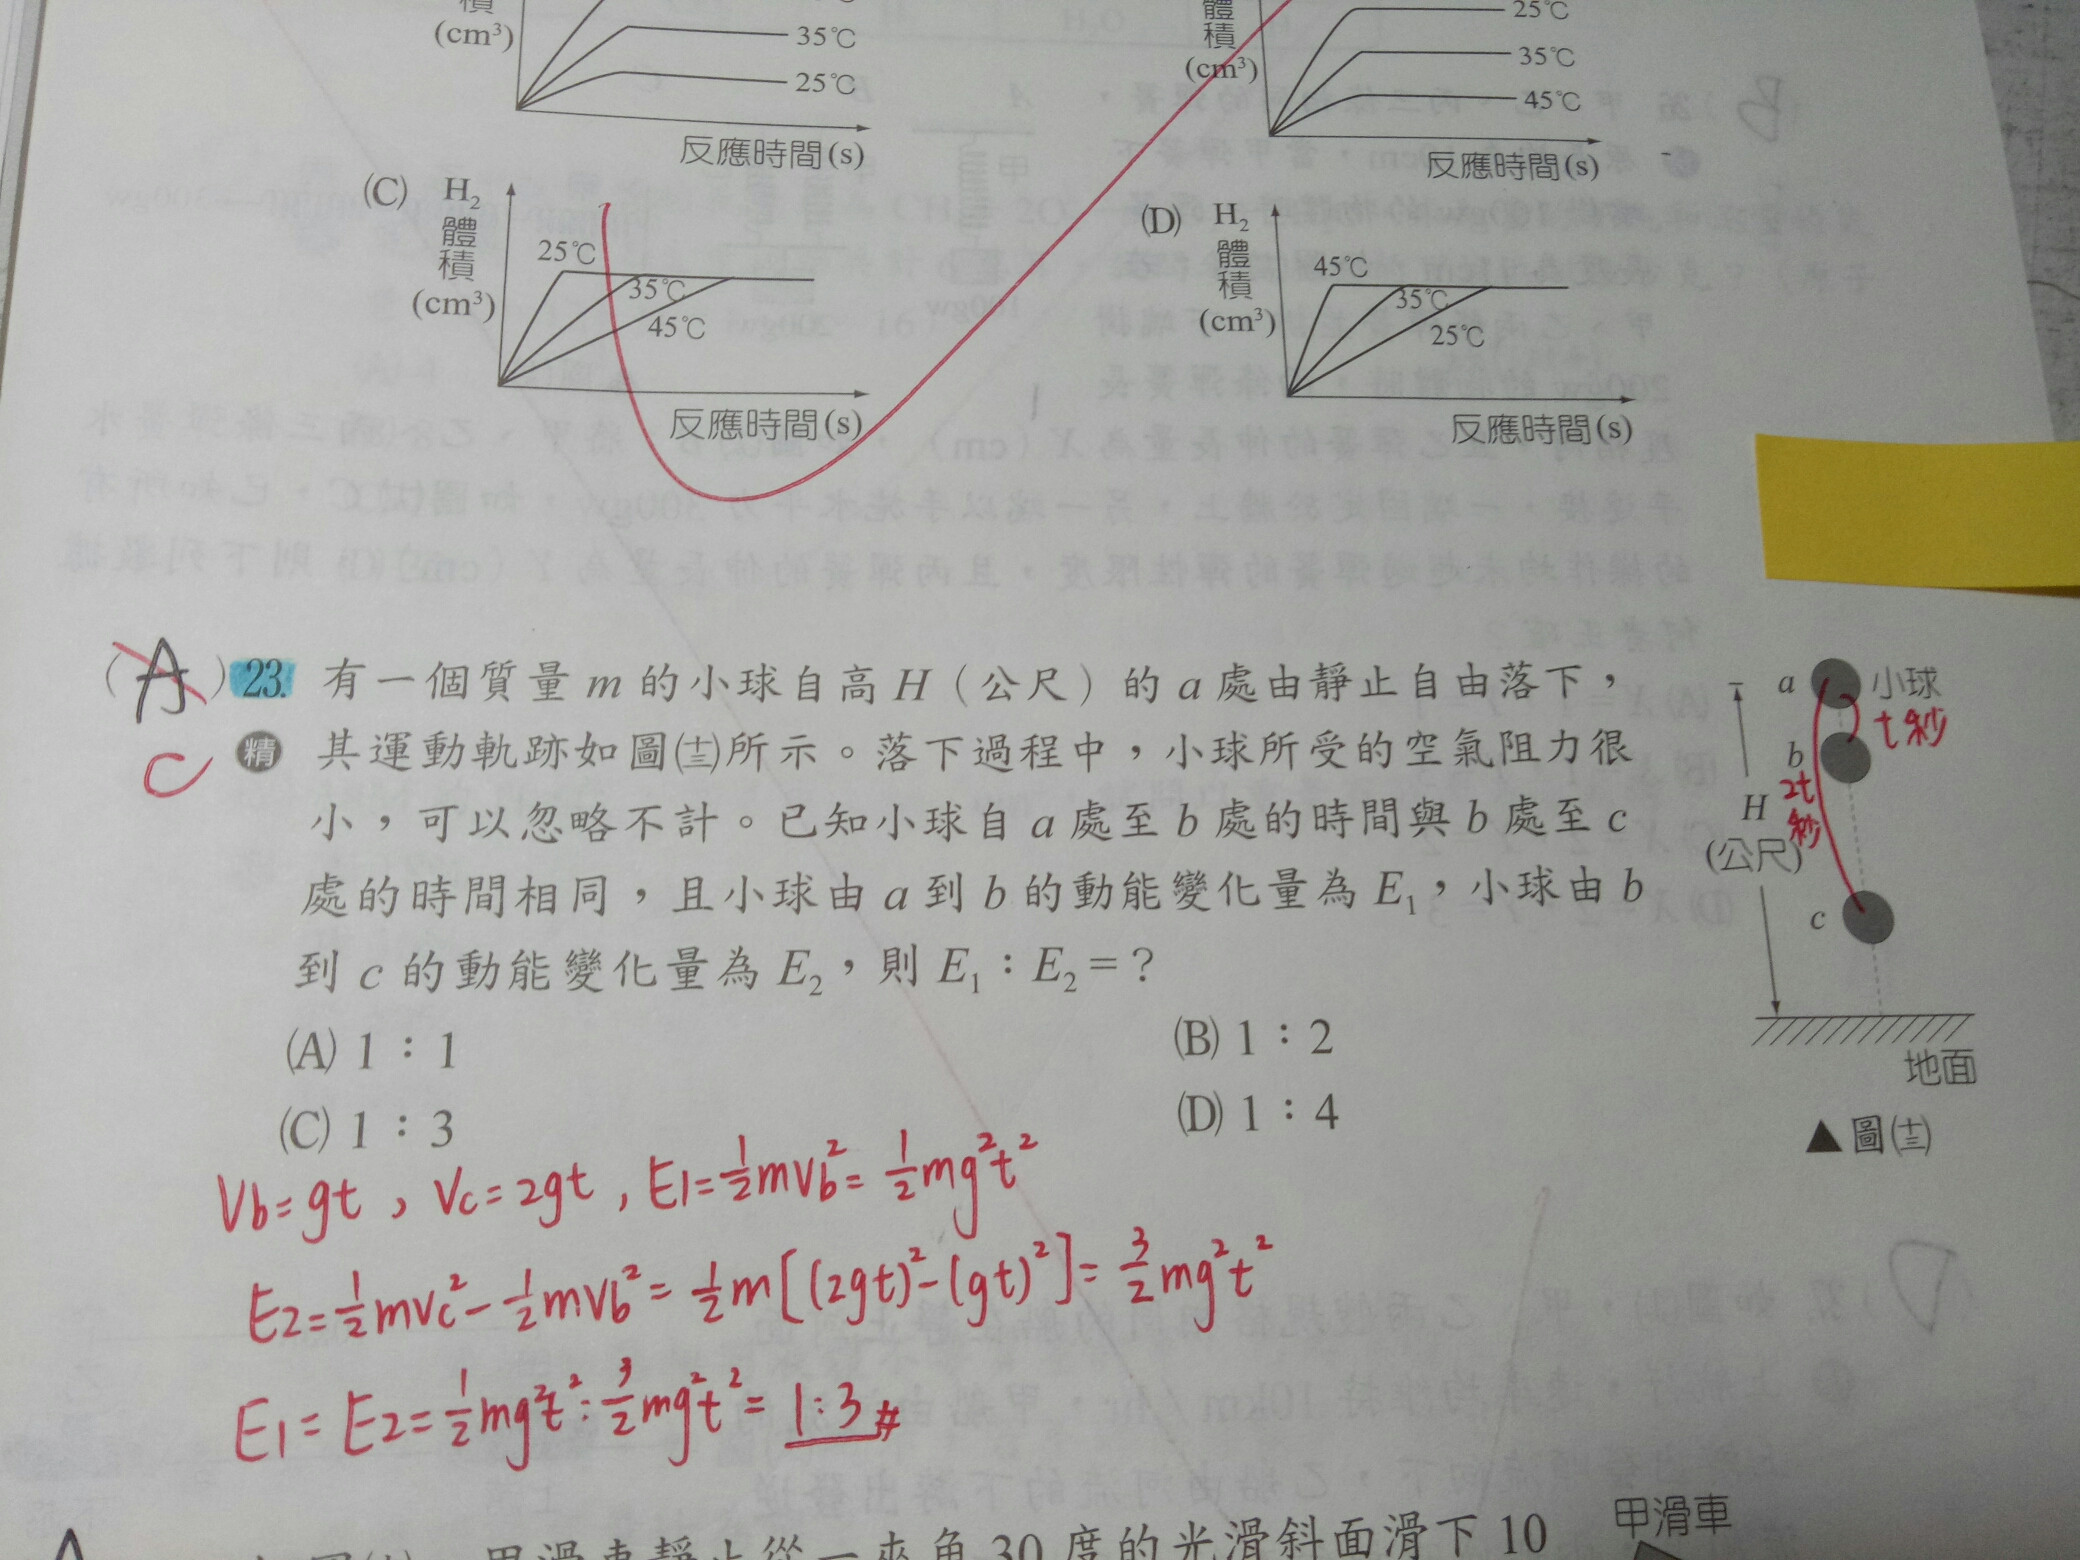 積
(cm³)
35℃
25℃
反應時間(s)
體
積
(cm³)
25℃
35℃
45℃
反應時間(s)
(C) H₂
體
積
(cm³)
25℃
35℃
45℃
反應時間(s)
(D) H₂
體
積
(cm³)
45℃
35℃
25℃
反應時間(s)
(A) 23. 有一個質量 m 的小球自高 H（公尺）的 a 處由靜止自由落下，
C 精 其運動軌跡如圖(十三)所示。落下過程中，小球所受的空氣阻力很
小，可以忽略不計。已知小球自 a 處至 b 處的時間與 b 處至 c
處的時間相同，且小球由 a 到 b 的動能變化量為 E₁，小球由 b
到 c 的動能變化量為 E₂，則 E₁：E₂＝？
(A) 1：1
(B) 1：2
(C) 1：3
(D) 1：4
a 小球
t秒
b
2t
秒
H
(公尺)
c
地面
▲圖(十三)
Vb=gt，Vc=2gt，E1=½mVb²=½mg²t²
E2=½mVc²-½mVb²=½m[(2gt)²-(gt)²]=3/2mg²t²
E1=E2=½mg²t²:3/2mg²t²=1:3#
甲滑車
甲滑車靜止從一夾角30度的光滑斜面滑下10